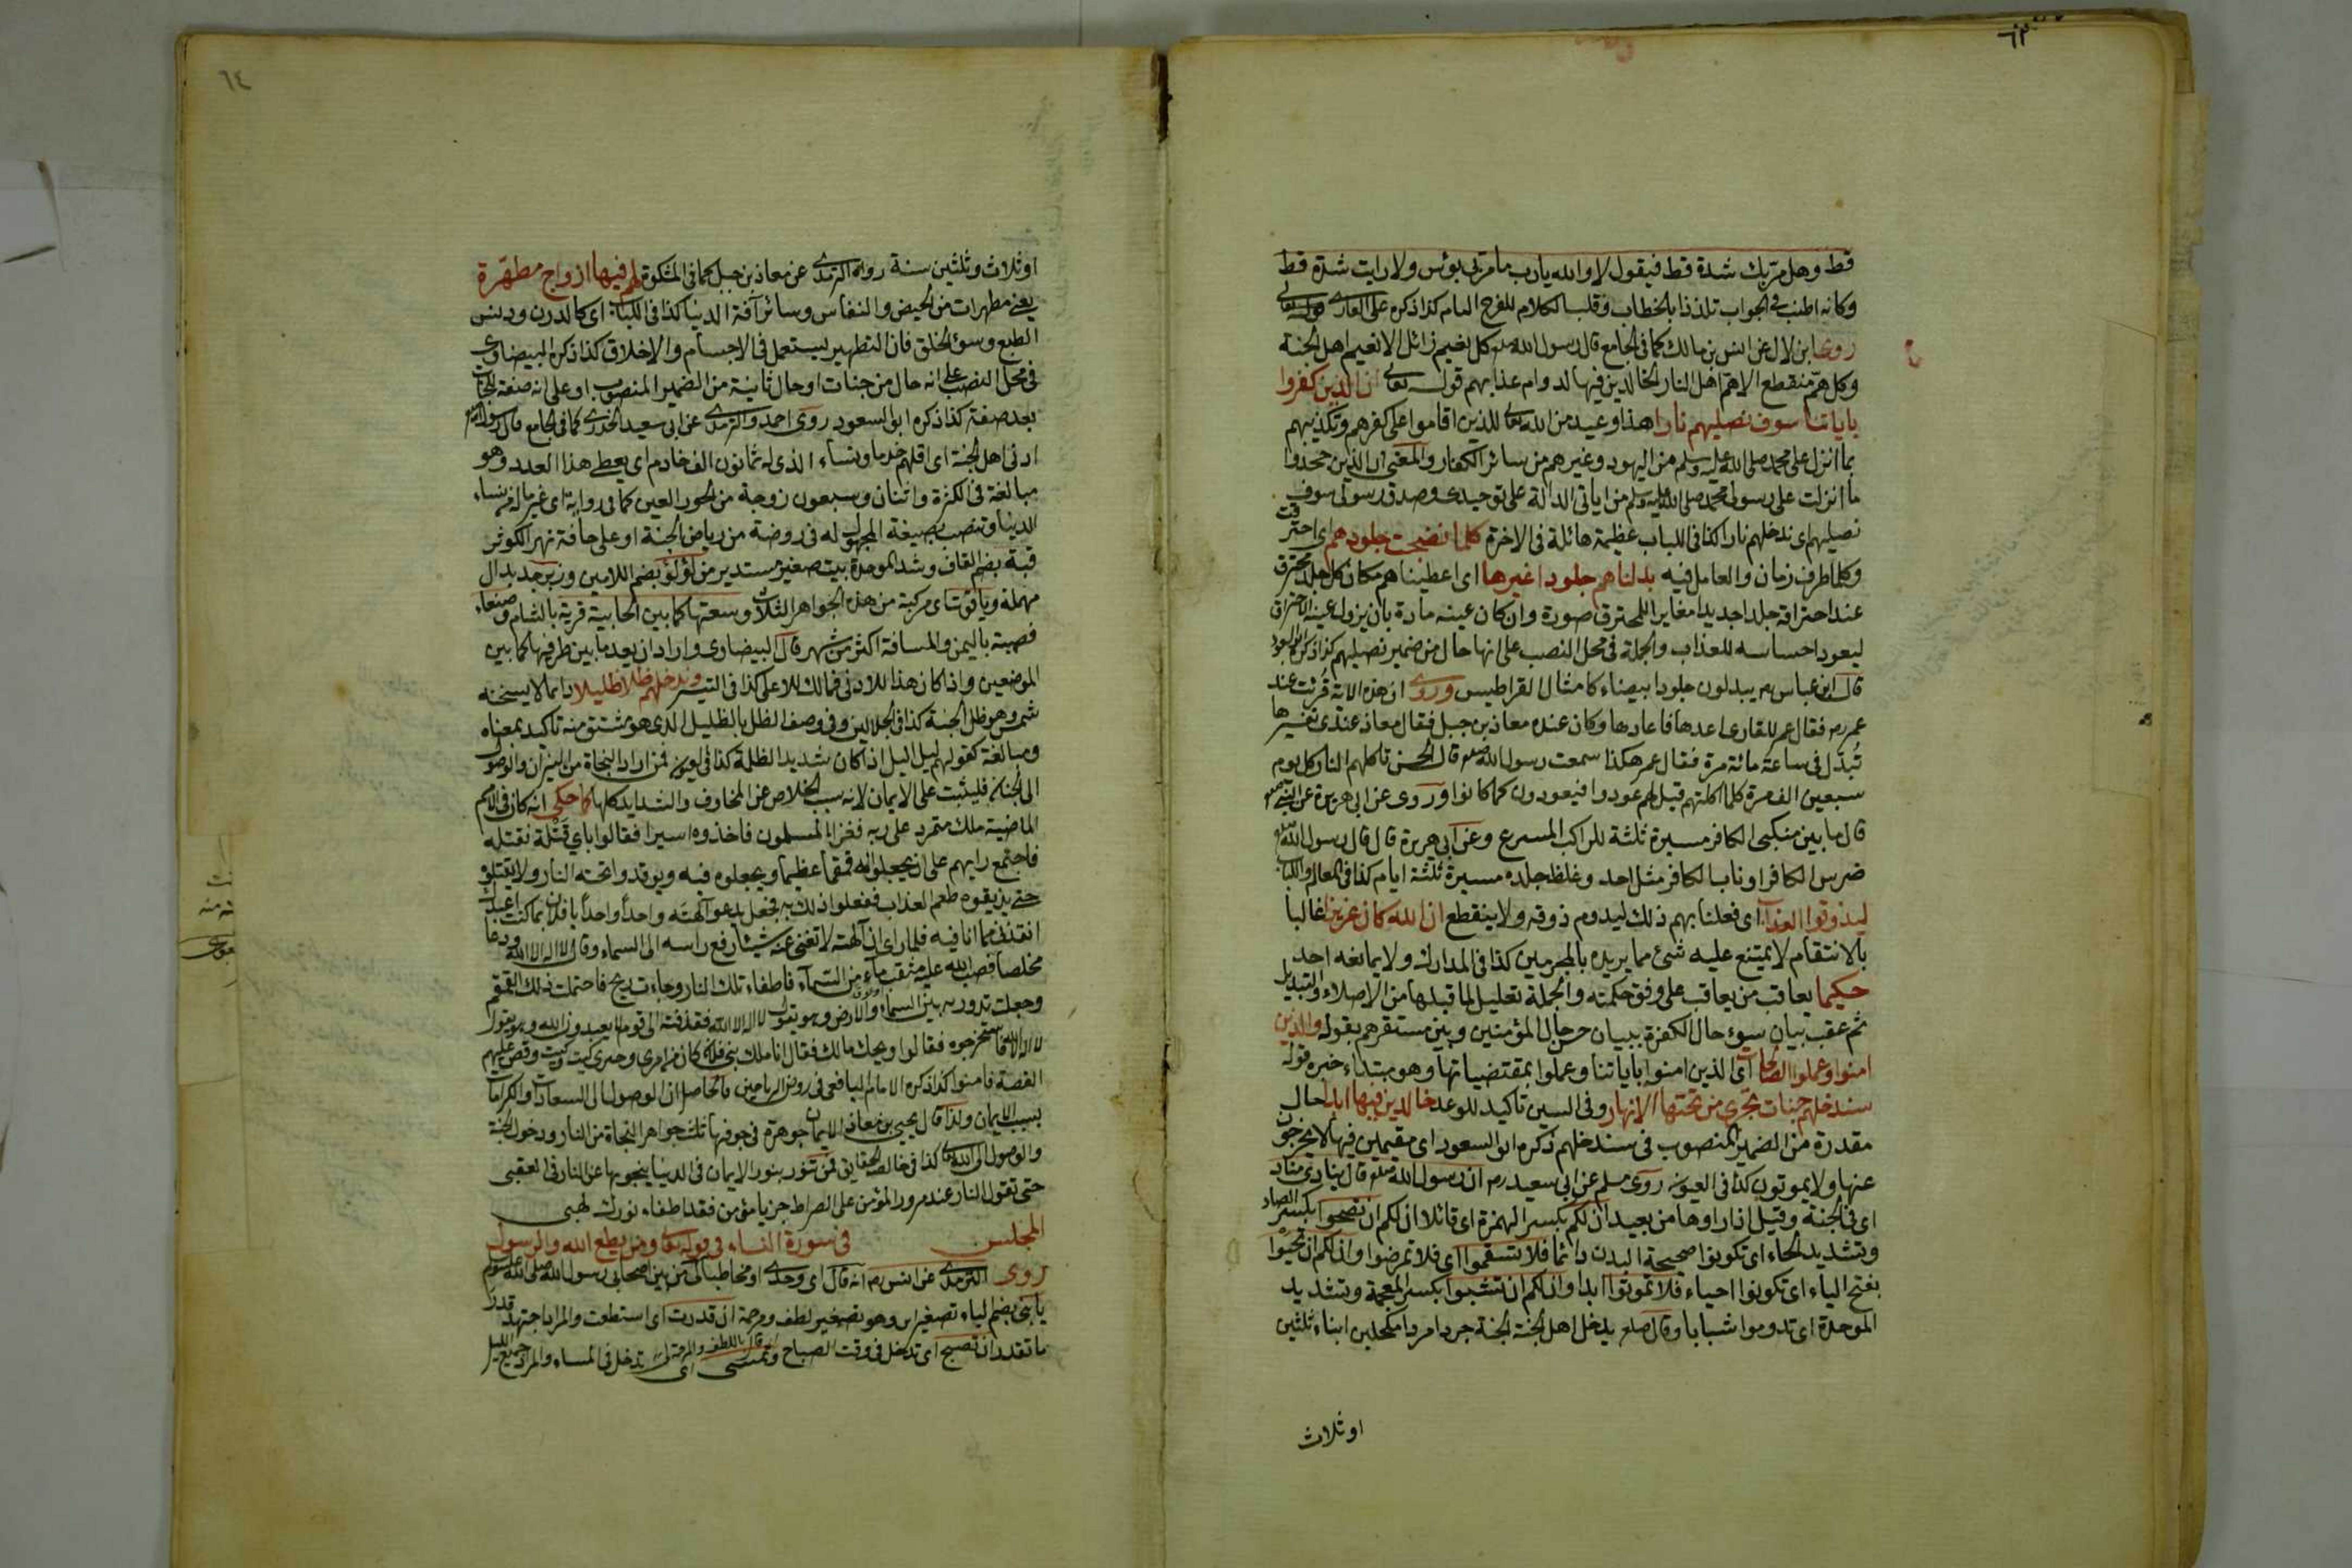 ٦٣
قط وهل مر بك شدة قط فيقول لا والله يا رب ما مر بي بؤس ولا رايت شدة قط
وكانه اطنب في الجواب تلذذا بالخطاب وقلبا للكلام للفرح التام كذا ذكره على القارى
روى ابن لال عن انس بن مالك كما في الجامع قال رسول الله صلعم كل نعيم زائل الا نعيم اهل الجنة
وكل هم منقطع الا هم اهل النار الخالدين فيها لدوام عذابهم قوله تعالى ان الذين كفروا
باياتنا سوف نصليهم نارا هذا وعيد من الله تعالى للذين اقاموا على كفرهم وتكذيبهم
بما انزل على محمد صلى الله عليه وسلم من اليهود وغيرهم من سائر الكفار والمعنى ان الذين جحدوا
ما انزلت على رسولى محمد صلى الله عليه وسلم من اياتى الدالة على توحيدى وصدق رسولى سوف
نصليهم اى ندخلهم نارا كذا في اللباب عظيمة هائلة في الاخرة كلما نضجت جلودهم اى احترقت
وكلما ظرف زمان والعامل فيه بدلناهم جلودا غيرها اى اعطيناهم مكان كل جلد محترق
عند احتراقه جلدا جديدا مغايرا للمحترق صورة وان كان عينه مادة بان يزول عينه الاحتراق
ليعود احساسه للعذاب والجملة في محل النصب على انها حال من ضمير نصليهم كذا ذكره ابو السعود
قال ابن عباس رض يبدلون جلودا بيضاء كامثال القراطيس وروى ان هذه الاية قرئت عند
عمر رض فقال عمر للقارى اعدها فاعادها وكان عنده معاذ بن جبل فقال معاذ عندى تفسيرها
تبدل في ساعة مائة مرة فقال عمر هكذا سمعت رسول الله صلعم قال الحسن تاكلهم النار كل يوم
سبعين الف مرة كلما اكلتهم قيل لهم عودوا فيعودون كما كانوا وروى عن ابى هريرة عن النبى صلعم
قال ما بين منكبى الكافر مسيرة ثلثة للراكب المسرع وعن ابى هريرة قال قال رسول الله صلعم
ضرس الكافر او ناب الكافر مثل احد وغلظ جلده مسيرة ثلثة ايام كذا في المعالم واللباب
ليذوقوا العذاب اى فعلنا بهم ذلك ليدوم ذوقه ولا ينقطع ان الله كان عزيزا غالبا
بالانتقام لا يمتنع عليه شئ مما يريده بالمجرمين كذا في المدارك ولا يمانعه احد
حكيما يعاقب من يعاقب على وفق حكمته والجملة تعليل لما قبلها من الاصلاء والتبديل
ثم عقب بيان سوء حال الكفرة ببيان حسن حال المؤمنين وبين مستقرهم بقوله والذين
امنوا وعملوا الصالحات اى الذين امنوا باياتنا وعملوا بمقتضياتها وهو مبتداء خبره قوله
سندخلهم جنات تجرى من تحتها الانهار وفي السين تاكيد للوعد خالدين فيها ابدا حال
مقدرة من الضمير المنصوب في سندخلهم ذكره ابو السعود اى مقيمين فيها لا يخرجون
عنها ولا يموتون كذا في العيون روى مسلم عن ابى سعيد رض ان رسول الله صلعم قال ينادى مناد
اى في الجنة وقيل اذا راوها من بعيد ان لكم بكسر الهمزة اى قائلا ان لكم ان تصحوا بكسر الصاد
وتشديد الحاء اى تكونوا صحيحة البدن دائما فلا تسقموا اى فلا تمرضوا وان لكم ان تحيوا
بفتح الياء اى تكونوا احياء فلا تموتوا ابدا وان لكم ان تشبوا بكسر المعجمة وتشديد
الموحدة اى تدوموا شبابا وقال صلعم يدخل اهل الجنة الجنة جردا مردا مكحلين ابناء ثلثين
او ثلاث
٦٤
او ثلاث وثلثين سنة رواه الترمذى عن معاذ بن جبل كما في المشكوة لهم فيها ازواج مطهرة
يعنى مطهرات من الحيض والنفاس وسائر آفة الدنيا كذا في اللباب اى كالدرن ودنس
الطبع وسوء الخلق فان التطهير يستعمل في الاجسام والاخلاق كذا ذكره البيضاوى
في محل النصب على انه حال من جنات او حال ثانية من الضمير المنصوب او على انه صفة لجنات
بعد صفة كذا ذكره ابو السعود روى احمد والترمذى عن ابى سعيد الخدرى كما في الجامع قال رسول الله صلعم
ادنى اهل الجنة اى اقلهم خدما ونساء الذى له ثمانون الف خادم اى يعطى هذا العدد وهو
مبالغة في الكثرة واثنان وسبعون زوجة من الحور العين كما في رواية اى غير ما له من نساء
الدنيا وتنصب بصيغة المجهول له في روضة من رياض الجنة او على حافة نهر الكوثر
قبة بضم القاف وشد الموحدة بيت صغير مستدير من لؤلؤ بضم اللامين وزبرجد بدال
مهملة وياقوت اى مركبة من هذه الجواهر الثلاث وسعتها كما بين الجابية قرية بالشام وصنعاء
قصبة باليمن والمسافة اكثر من شهر قال البيضاوى واراد ان بعد ما بين طرفيها كما بين
الموضعين واذا كان هذا للادنى فمالك للاعلى كذا في التيسير وندخلهم ظلا ظليلا دائما لا يسخنه
شمس وهو ظل الجنة كذا في الجلالين وفي وصف الظل بالظليل الذى هو مشتق منه تاكيد بمعناه
ومبالغة كقولهم ليل اليل اذا كان شديد الظلمة كذا في العيون فمن اراد النجاة من النيران والوصول
الى الجنان فليثبت على الايمان لانه سبب الخلاص عن المخاوف والشدايد كلها كما حكى انه كان في الامم
الماضية ملك متمرد على ربه فغزاه المسلمون فاخذوه اسيرا فقالوا باى قتلة نقتله
فاجتمع رايهم على ان يجعلوا له قمقما عظيما ويجعلوه فيه ويوقدوا تحته النار ولا يقتلوه
حتى يذيقوه طعم العذاب ففعلوا ذلك به فجعل يدعو آلهته واحدا واحدا يا فلان بما كنت اعبدك
انقذنى مما انا فيه فلما راى ان آلهته لا تغنى عنه شيئا رفع راسه الى السماء وقال لا اله الا الله ودعا
مخلصا فصب الله عليه مثقب ماء من السماء فاطفاء تلك النار وجاءت ريح فاحتملت ذلك القمقم
وجعلت تدور به بين السماء والارض وهو يقول لا اله الا الله فقذفته الى قوم لا يعبدون الله وهو يقول
لا اله الا الله فاستخرجوه فقالوا ويحك مالك فقال انا ملك بنى فلان كان من امرى وخبرى كيت وكيت وقص عليهم
القصة فامنوا كذا ذكره الامام اليافعى في روض الرياحين فالحاصل ان الوصول الى السعادات والكرامات
بسبب الايمان ولذا قال يحيى بن معاذ الايمان جوهرة في جوفها ثلث جواهر النجاة من النار ودخول الجنة
والوصول الى الله تعالى كذا في خالصة الحقايق فمن تنور بنور الايمان في الدنيا ينجو بها عن النار في العقبى
حتى تقول النار عند مرور المؤمن على الصراط جز يا مؤمن فقد اطفاء نورك لهبى
المجلس في سورة النساء في قوله تعالى ومن يطع الله والرسول
روى الترمذى عن انس رض انه قال اى وحدى او مخاطبا لى من بين اصحابى رسول الله صلى الله عليه وسلم
يا بنى بضم الياء تصغير ابن وهو تصغير لطف ومرحمة ان قدرت اى استطعت والمراد اجتهد قدر
ما تقدر ان تصبح اى تدخل في وقت الصباح وتمسى اى تدخل في المساء والمراد جميع الليل